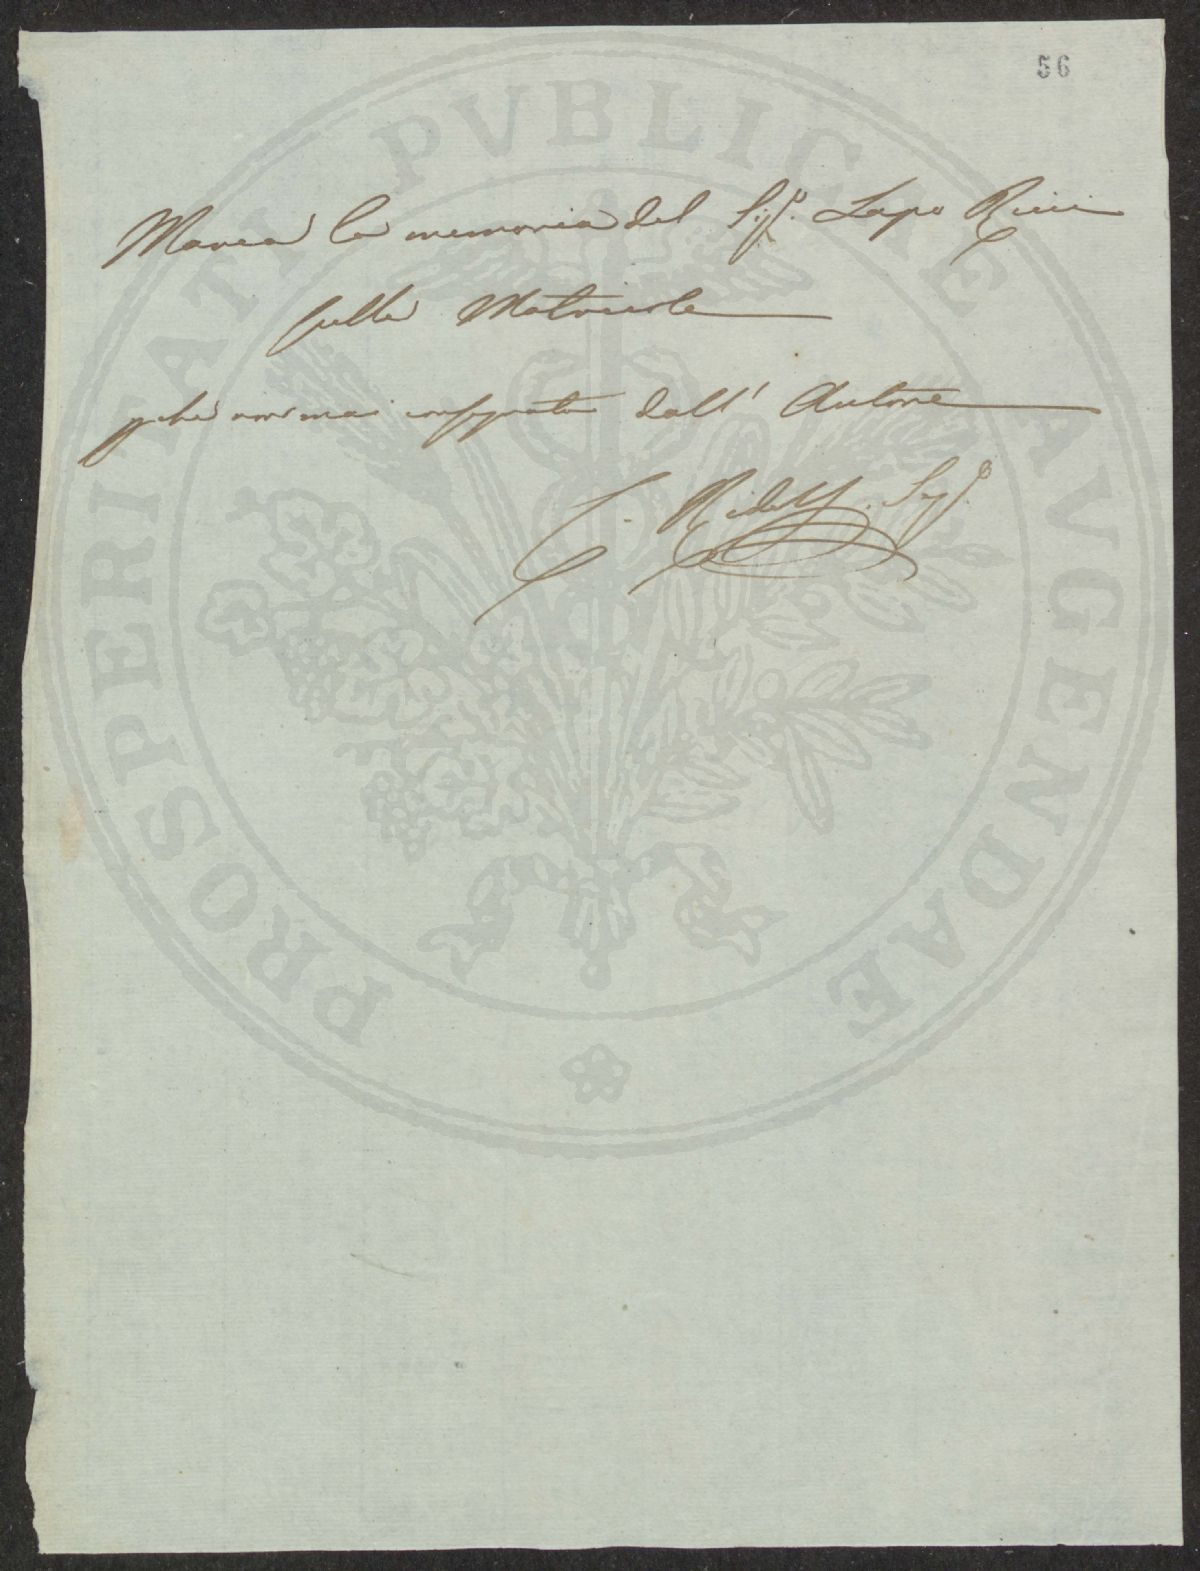 56
Manca la memoria del Sig.e Lapo Ricci
sulle Matricole
pché non mai consegnata dall' Autore
C. Ridolfi. Seg.o
PROSPERITATI PVBLICAE AVGENDAE